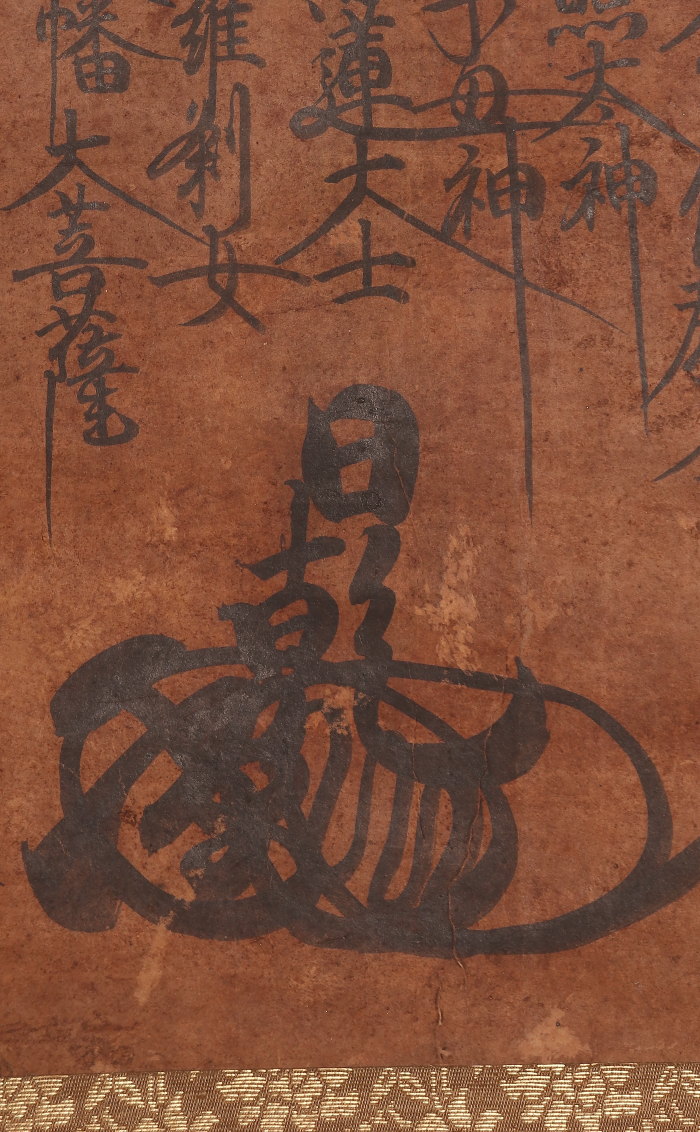 照大神
子母神
蓮大士
羅刹女
幡大菩薩
日